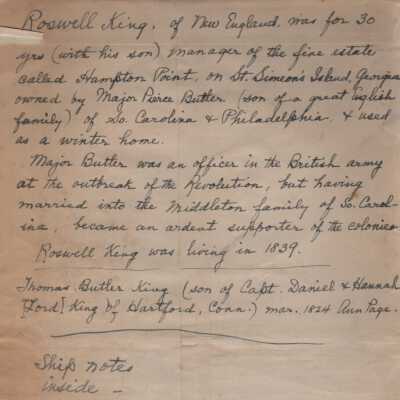 Roswell King, of New England, was for 30
yrs (with his son) manager of the fine estate
called Hampton Point, on St. Simeon's Island, Georgia
owned by Major Peirce Butler, (son of a great English
family) of So. Carolina & Philadelphia, & used
as a winter home.
Major Butler was an officer in the British army
at the outbreak of the Revolution, but having
married into the Middleton family of So. Carol-
ina, became an ardent supporter of the colonies.
Roswell King was living in 1839.
Thomas Butler King (son of Capt. Daniel & Hannah
[Ford] King of Hartford, Conn.) mar. 1824 Ann Page.
Ship notes
inside –